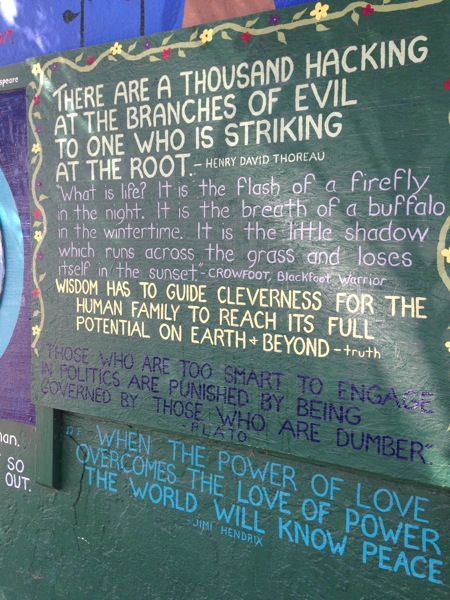 speare
THERE ARE A THOUSAND HACKING
AT THE BRANCHES OF EVIL
TO ONE WHO IS STRIKING
AT THE ROOT. - HENRY DAVID THOREAU
"What is life? It is the flash of a firefly
in the night. It is the breath of a buffalo
in the wintertime. It is the little shadow
which runs across the grass and loses
itself in the sunset" - CROWFOOT, Blackfoot Warrior
WISDOM HAS TO GUIDE CLEVERNESS FOR THE
HUMAN FAMILY TO REACH ITS FULL
POTENTIAL ON EARTH + BEYOND - truth
THOSE WHO ARE TOO SMART TO ENGAGE
IN POLITICS ARE PUNISHED BY BEING
GOVERNED BY THOSE WHO ARE DUMBER".
- PLATO
WHEN THE POWER OF LOVE
OVERCOMES THE LOVE OF POWER
THE WORLD WILL KNOW PEACE
JIMI HENDRIX
man.
SO
OUT.